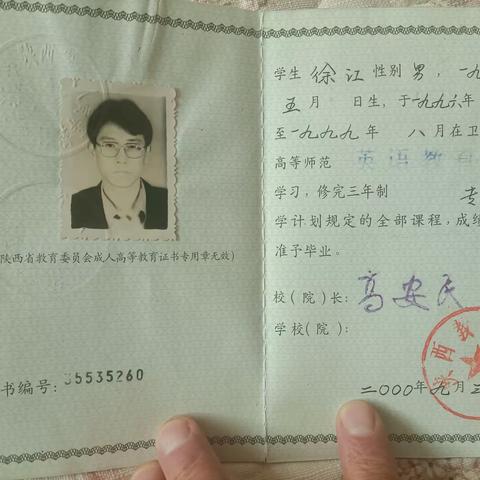 (陕西省教育委员会成人高等教育证书专用章无效)
书编号: 35535260
学生 徐江 性别 男, 一九
五月 日生, 于一九九六年
至一九九九年 八月在卫
高等师范 英语教育
学习, 修完三年制 专
学计划规定的全部课程, 成绩
准予毕业。
校(院)长: 高安民
学校(院):
二〇〇〇年九月
西教